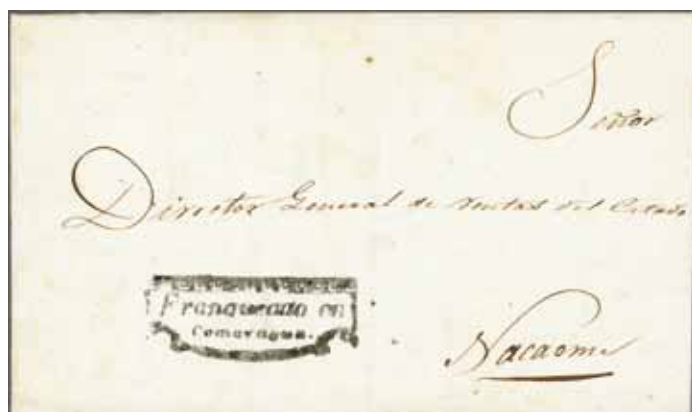 Señor
Director General de rentas del Estado
Franqueado en
Comayagua.
Nacaome